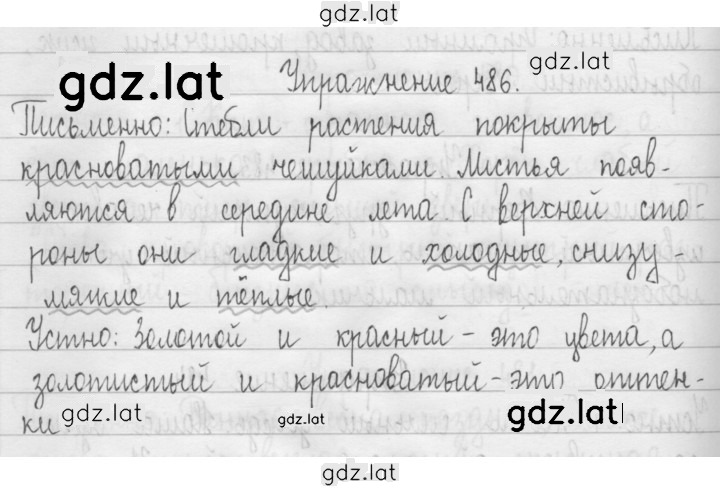 gdz.lat
gdz.lat
Упражнение 486.
gdz.lat
Письменно: Стебли растения покрыты
красноватыми чешуйками. Листья появ-
ляются в середине лета. С верхней сто-
роны они гладкие и холодные, снизу -
мягкие и тёплые.
Устно: Золотой и красный - это цвета, а
золотистый и красноватый - это оттен-
ки
gdz.lat
gdz.lat
gdz.lat
gdz.lat